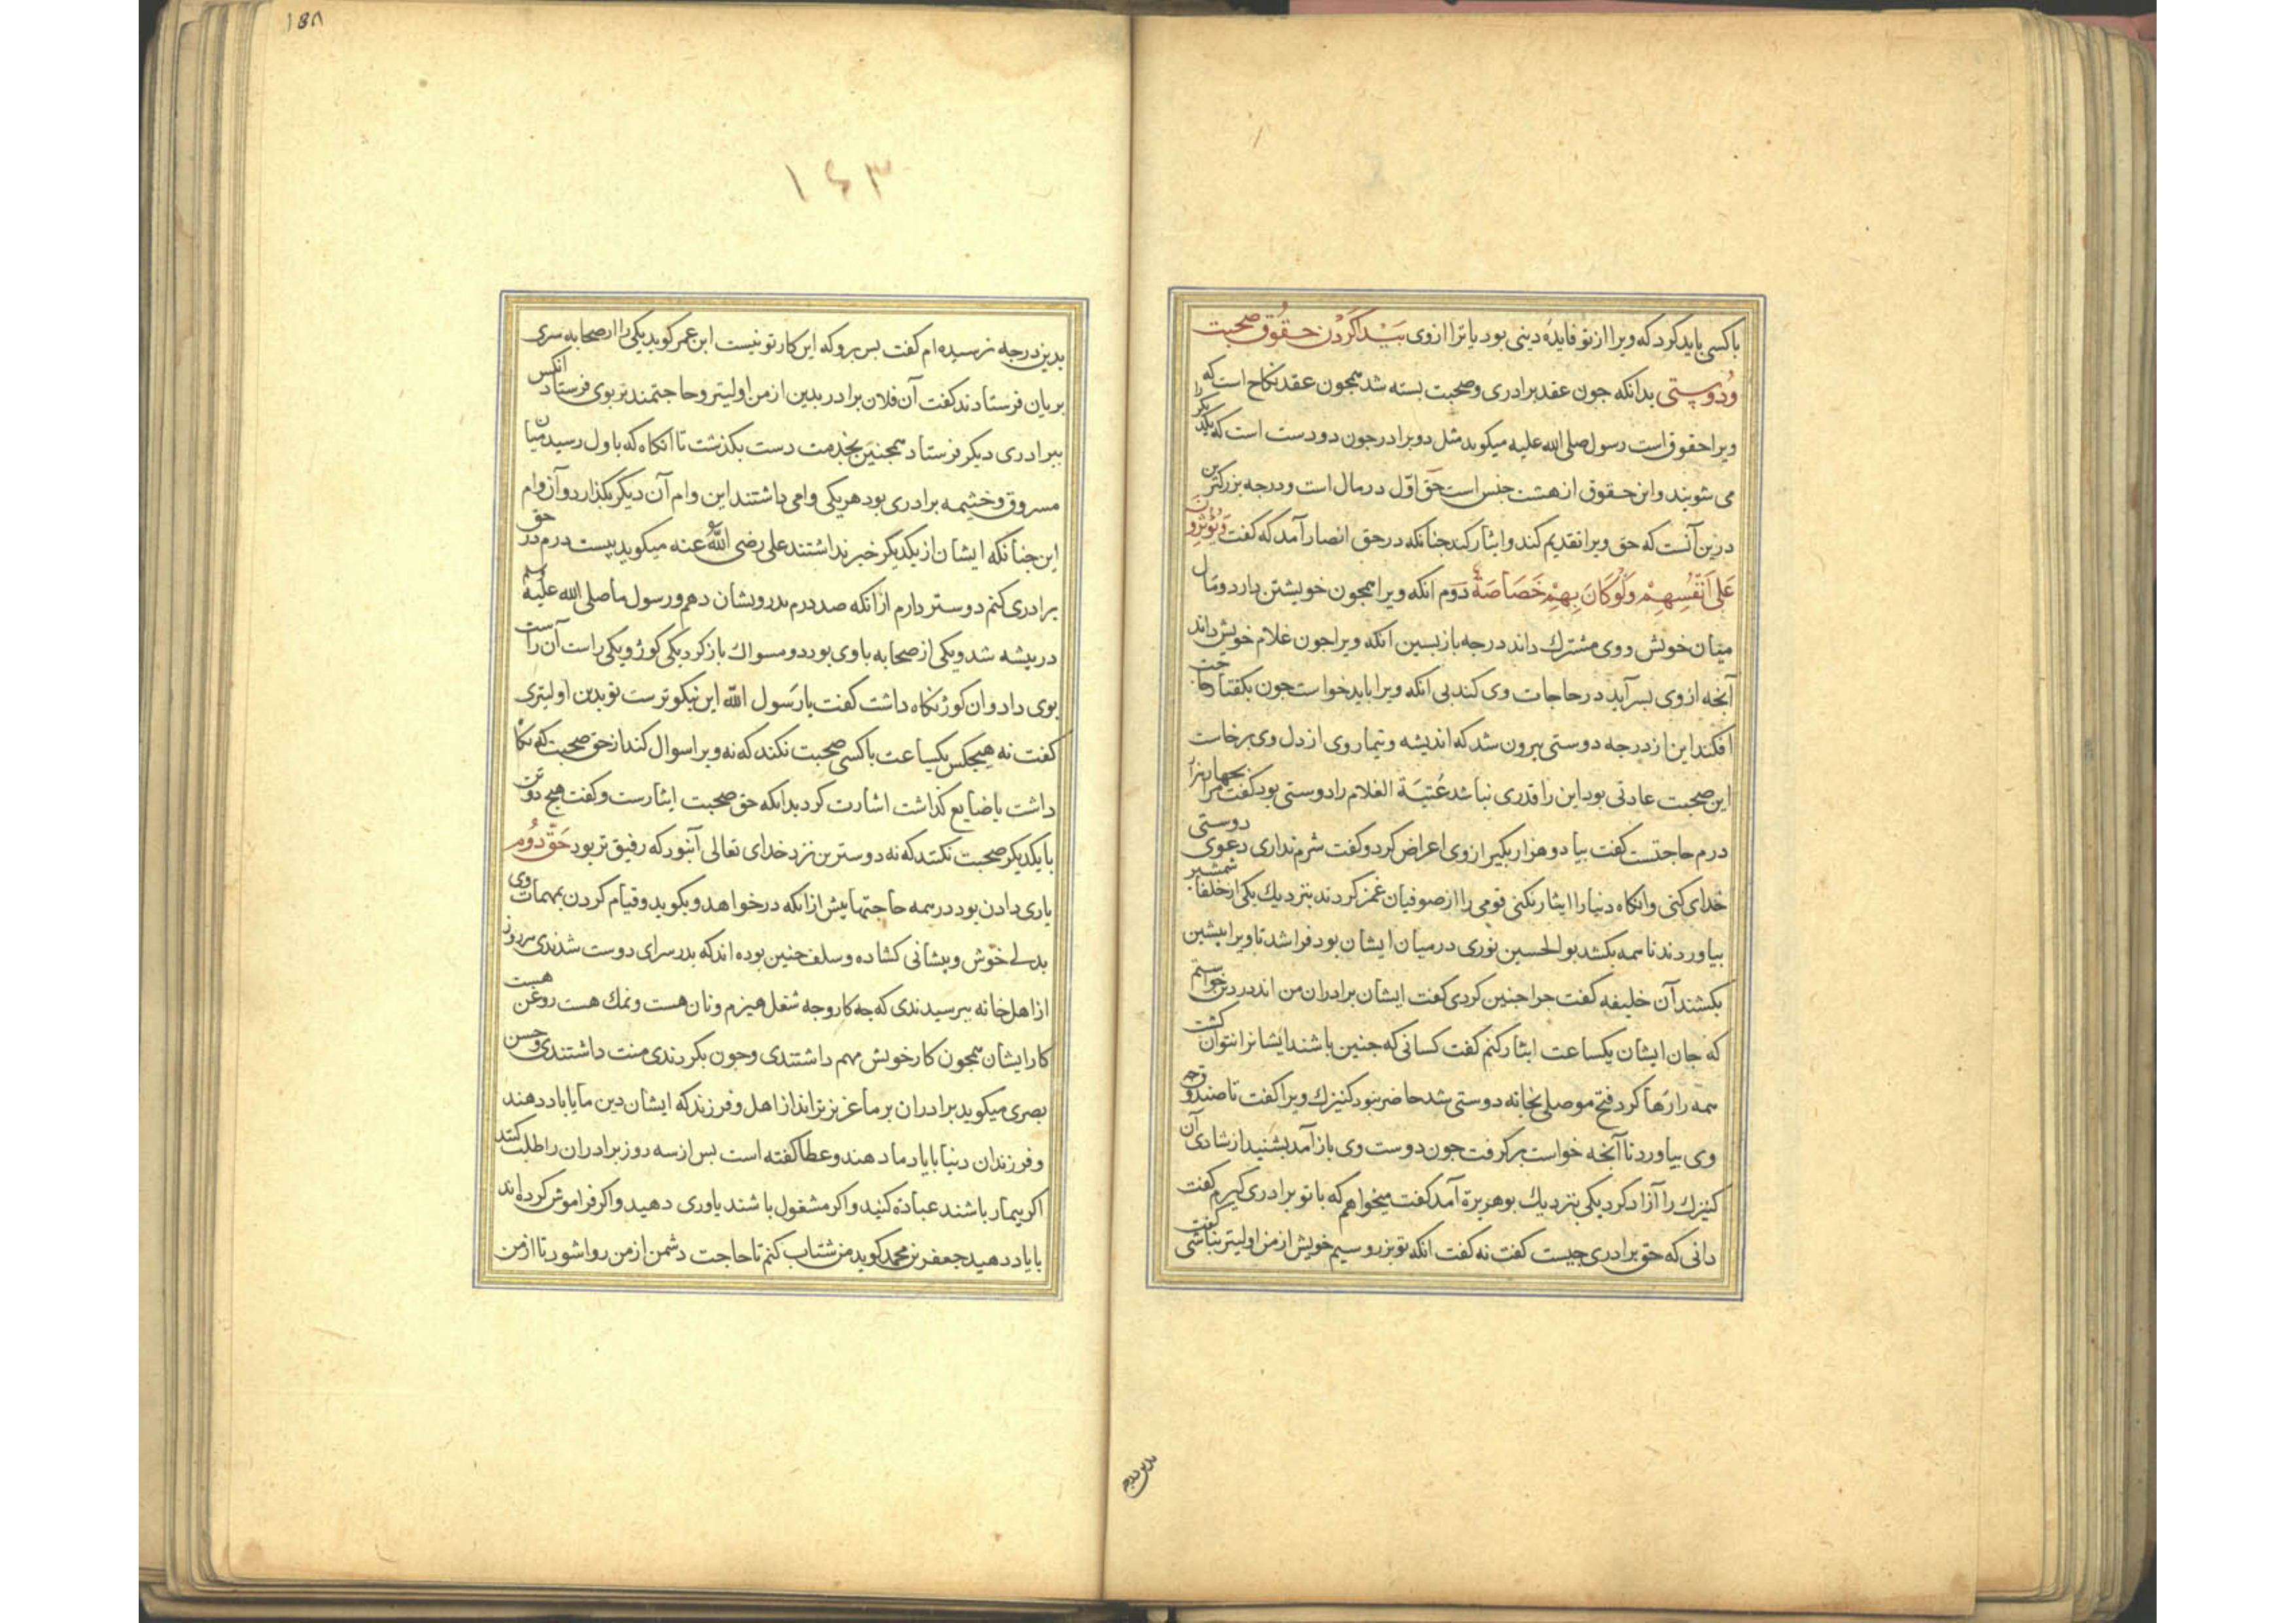 باکسی باید کرد که ویرا از تو فایدهٔ دینی بود یا ترا از وی پیدا کردن حقوق صحبت
و دوستی بدانکه جون عقد برادری و صحبت بسته شد همجون عقد نکاح است که
ویرا حقوق است رسول صلی الله علیه میکوید مثل دو برادر جون دو دست است که یکدیکر را
می شویند و این حقوق از هشت جنس است حق اوّل در مال است و درجه بزرکترین
درین آنست که حق ویرا تقدیم کند و ایثار کند جنانکه در حق انصار آمد که کفت وَیُؤْثِرُونَ
عَلَی اَنْفُسِهِمْ وَلَوْ کَانَ بِهِمْ خَصَاصَةٌ دوم انکه ویرا همجون خویشتن دارد و مال
میان خویش و وی مشترک داند درجه بازبسین انکه ویرا جون غلام خویش داند
آنجه از وی بسر آید در حاجات وی کند بی انکه ویرا باید خواست جون بکفتار حاجت
افکند این از درجه دوستی بیرون شد که اندیشه و تیمار وی از دل وی برخاست
این صحبت عادتی بود این را قدری نباشد عُتبَة الغلام را دوستی بود کفت مرا بجهار هزار
درم حاجتست کفت بیا دو هزار بکیر از وی اعراض کرد و کفت شرم نداری دعوی دوستی
خدای کنی وانکاه دنیا را ایثار نکنی قومی را از صوفیان غمز کردند بنزدیک یکی از خلفا شمشیر
بیاوردند تا همه بکشد بوالحسین نوری در میان ایشان بود فرا شد تا ویرا بیشین
بکشند آن خلیفه کفت جرا جنین کردی کفت ایشان برادران من اند در دین خواستم
که جان ایشان یکساعت ایثار کنم کفت کسانی که جنین باشند ایشانرا نتوان کشت
همه را رها کرد فتح موصلی بخانه دوستی شد حاضر نبود کنیزک ویرا کفت تا صندوقچه
وی بیاورد تا آنجه خواست برکرفت جون دوست وی باز آمد بشنید از شادی آن
کنیزک را آزاد کرد یکی بنزدیک بوهریرة آمد کفت میخواهم که با تو برادری کیرم کفت
دانی که حق برادری جیست کفت نه کفت انکه تو بزر و سیم خویش از من اولیتر نباشی کفت
بدین درجه
۱۵۸
۱۶۳
بدین درجه نرسیده ام کفت بس برو که این کار تو نیست ابن عمر کوید یکی را از صحابه سری
بریان فرستادند کفت آن فلان برادر بدین از من اولیتر و حاجتمندتر بوی فرستاد انکس
ببرادری دیکر فرستاد همجنین بجند دست بکذشت تا آنکاه که باول رسید میان
مسروق و خثیمه برادری بود هر یکی وامی داشتند این وام آن دیکر بکذارد و آن وام
این جنانکه ایشان از یکدیکر خبر نداشتند علی رضی الله عنه میکوید بیست درم در حق
برادری کنم دوستر دارم ازانکه صد درم بدرویشان دهم و رسول ما صلی الله علیه و سلم
در بیشه شد و یکی از صحابه با وی بود دو مسواک باز کرد یکی کوژ و یکی راست آن راست
بوی داد و ان کوژ نکاه داشت کفت یا رَسول الله این نیکوترست تو بدین اولیتری
کفت نه هیجکس یکساعت با کسی صحبت نکند که نه ویرا سوال کند از حق صحبت که نکاه
داشت یا ضایع کذاشت اشارت کرد بدانکه حق صحبت ایثارست و کفت هیج دو تن
با یکدیکر صحبت نکند که نه دوسترین نزد خدای تعالی آنبود که رفیق تر بود حَقّ دوُم
یاری دادن بود در همه حاجتها بیش ازانکه درخواهد و بکوید و قیام کردن بمهمات وی
بدلی خوش و بیشانی کشاده و سلف جنین بوده اند که بدر سرای دوست شدندی هر روز
از اهل خانه ببرسیدندی که جه کار و جه شغل هیزم و نان هست و نمک هست روغن هست
کار ایشان همجون کار خویش مهم داشتندی و جون بکردندی منت داشتندی و حسن
بصری میکوید برادران بر ما عزیزتر اند از اهل و فرزند که ایشان دین ما با یاد دهند
و فرزندان دنیا با یاد ما دهند و عطا کفته است بس از سه روز برادران را طلب کنند
اکر بیمار باشند عیادة کنید و اکر مشغول باشند یاوری دهید و اکر فراموش کرده اند
با یاد دهید جعفر بن محمد کوید من شتاب کنم تا حاجت دشمن از من روا شود تا از من